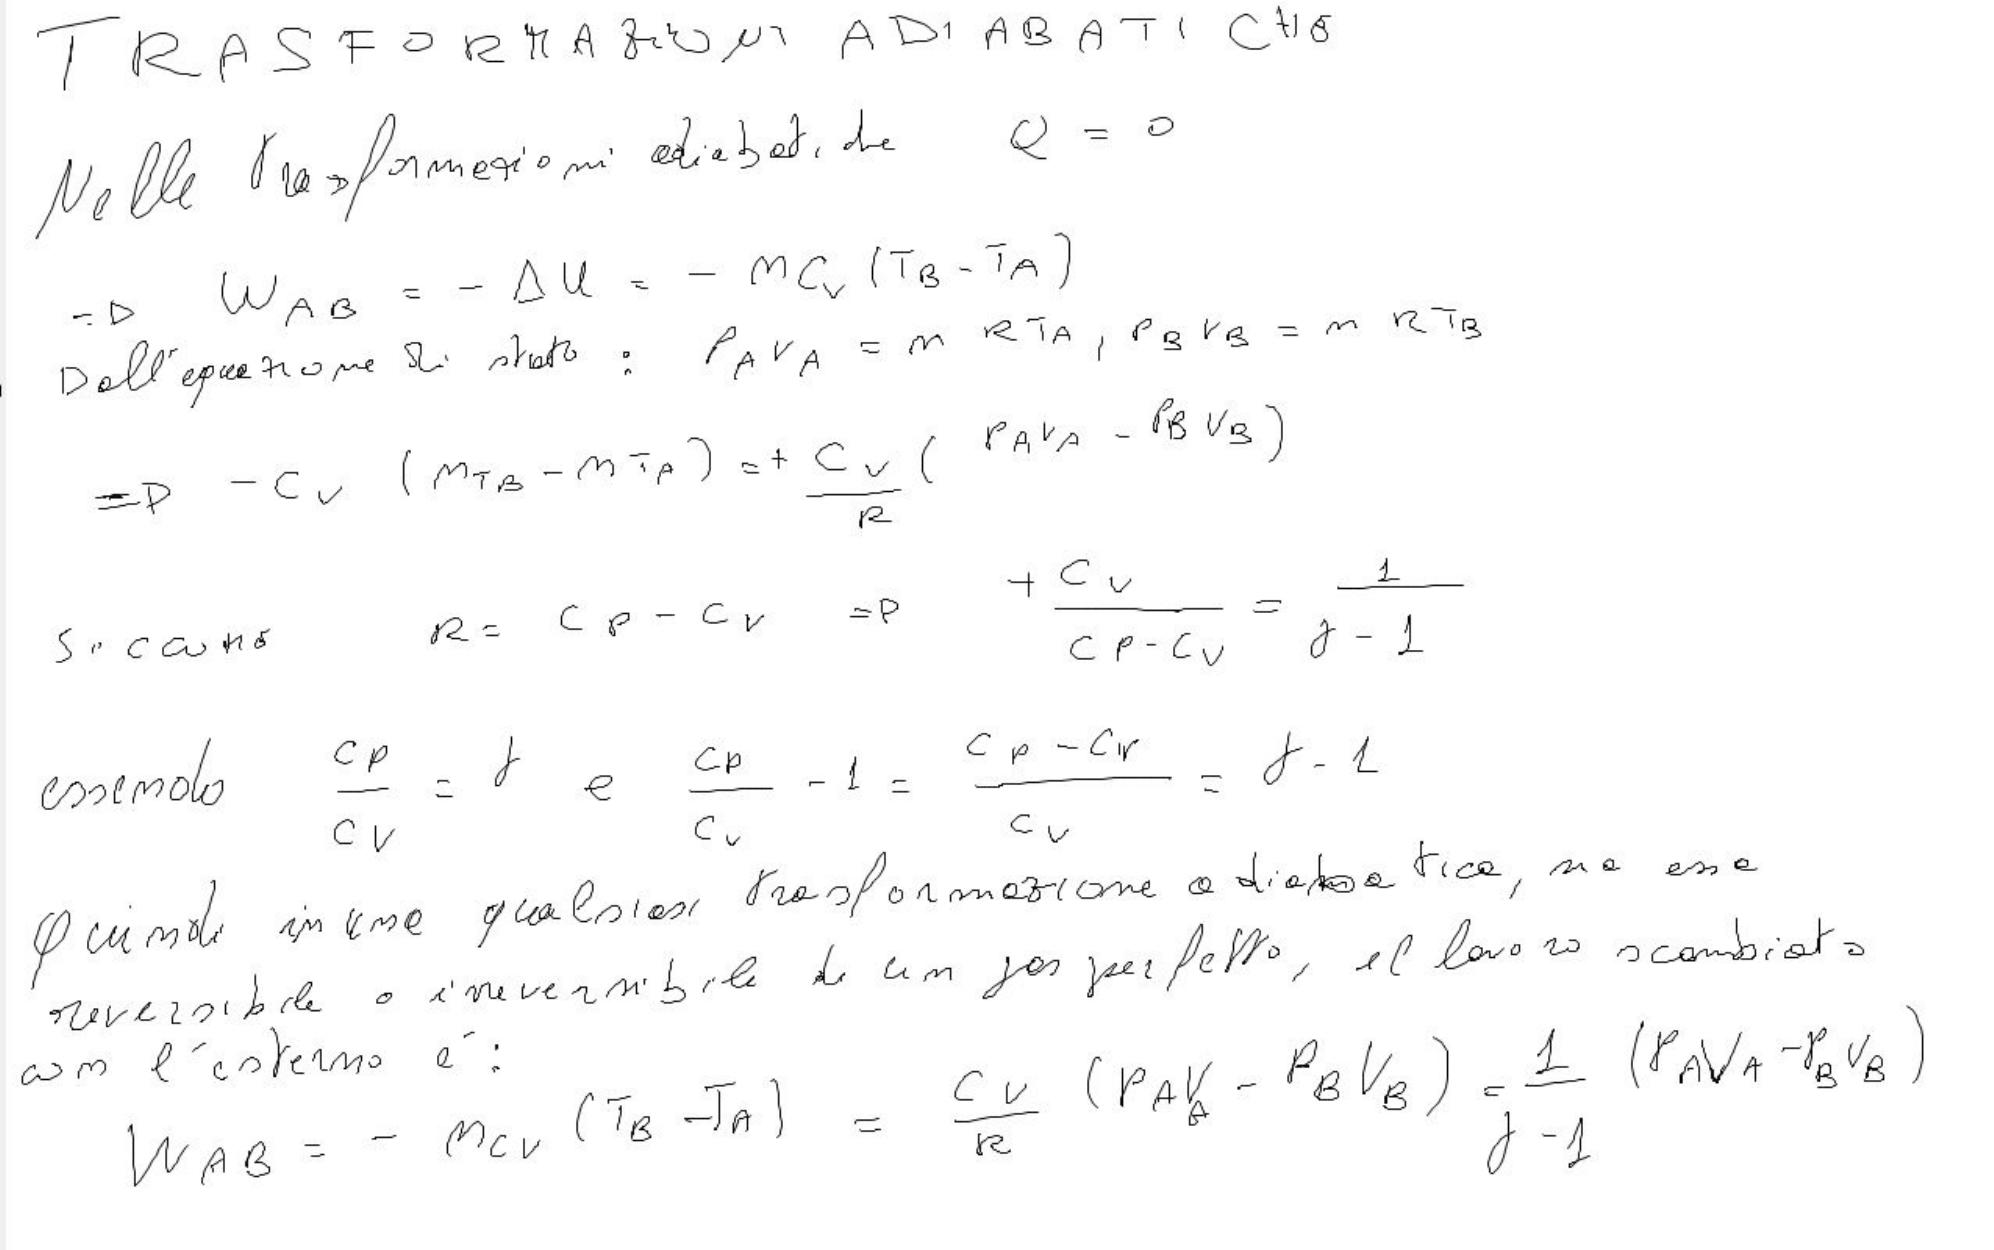 TRASFORMAZIONI ADIABATICHE
Nelle trasformazioni adiabatiche Q = 0
=D W_AB = - ΔU = - n C_V (T_B - T_A)
Dall'equazione di stato : P_A V_A = n R T_A , P_B V_B = n R T_B
=D - C_V ( n T_B - n T_A ) = + C_V / R ( P_A V_A - P_B V_B )
Siccome R = C_P - C_V =D + C_V / (C_P - C_V) = 1 / (γ - 1)
essendo C_P / C_V = γ e C_P / C_V - 1 = (C_P - C_V) / C_V = γ - 1
Quindi in una qualsiasi trasformazione adiabatica, sia essa
reversibile o irreversibile di un gas perfetto, il lavoro scambiato
con l'esterno è :
W_AB = - n C_V (T_B - T_A) = C_V / R (P_A V_A - P_B V_B) = 1 / (γ - 1) (P_A V_A - P_B V_B)